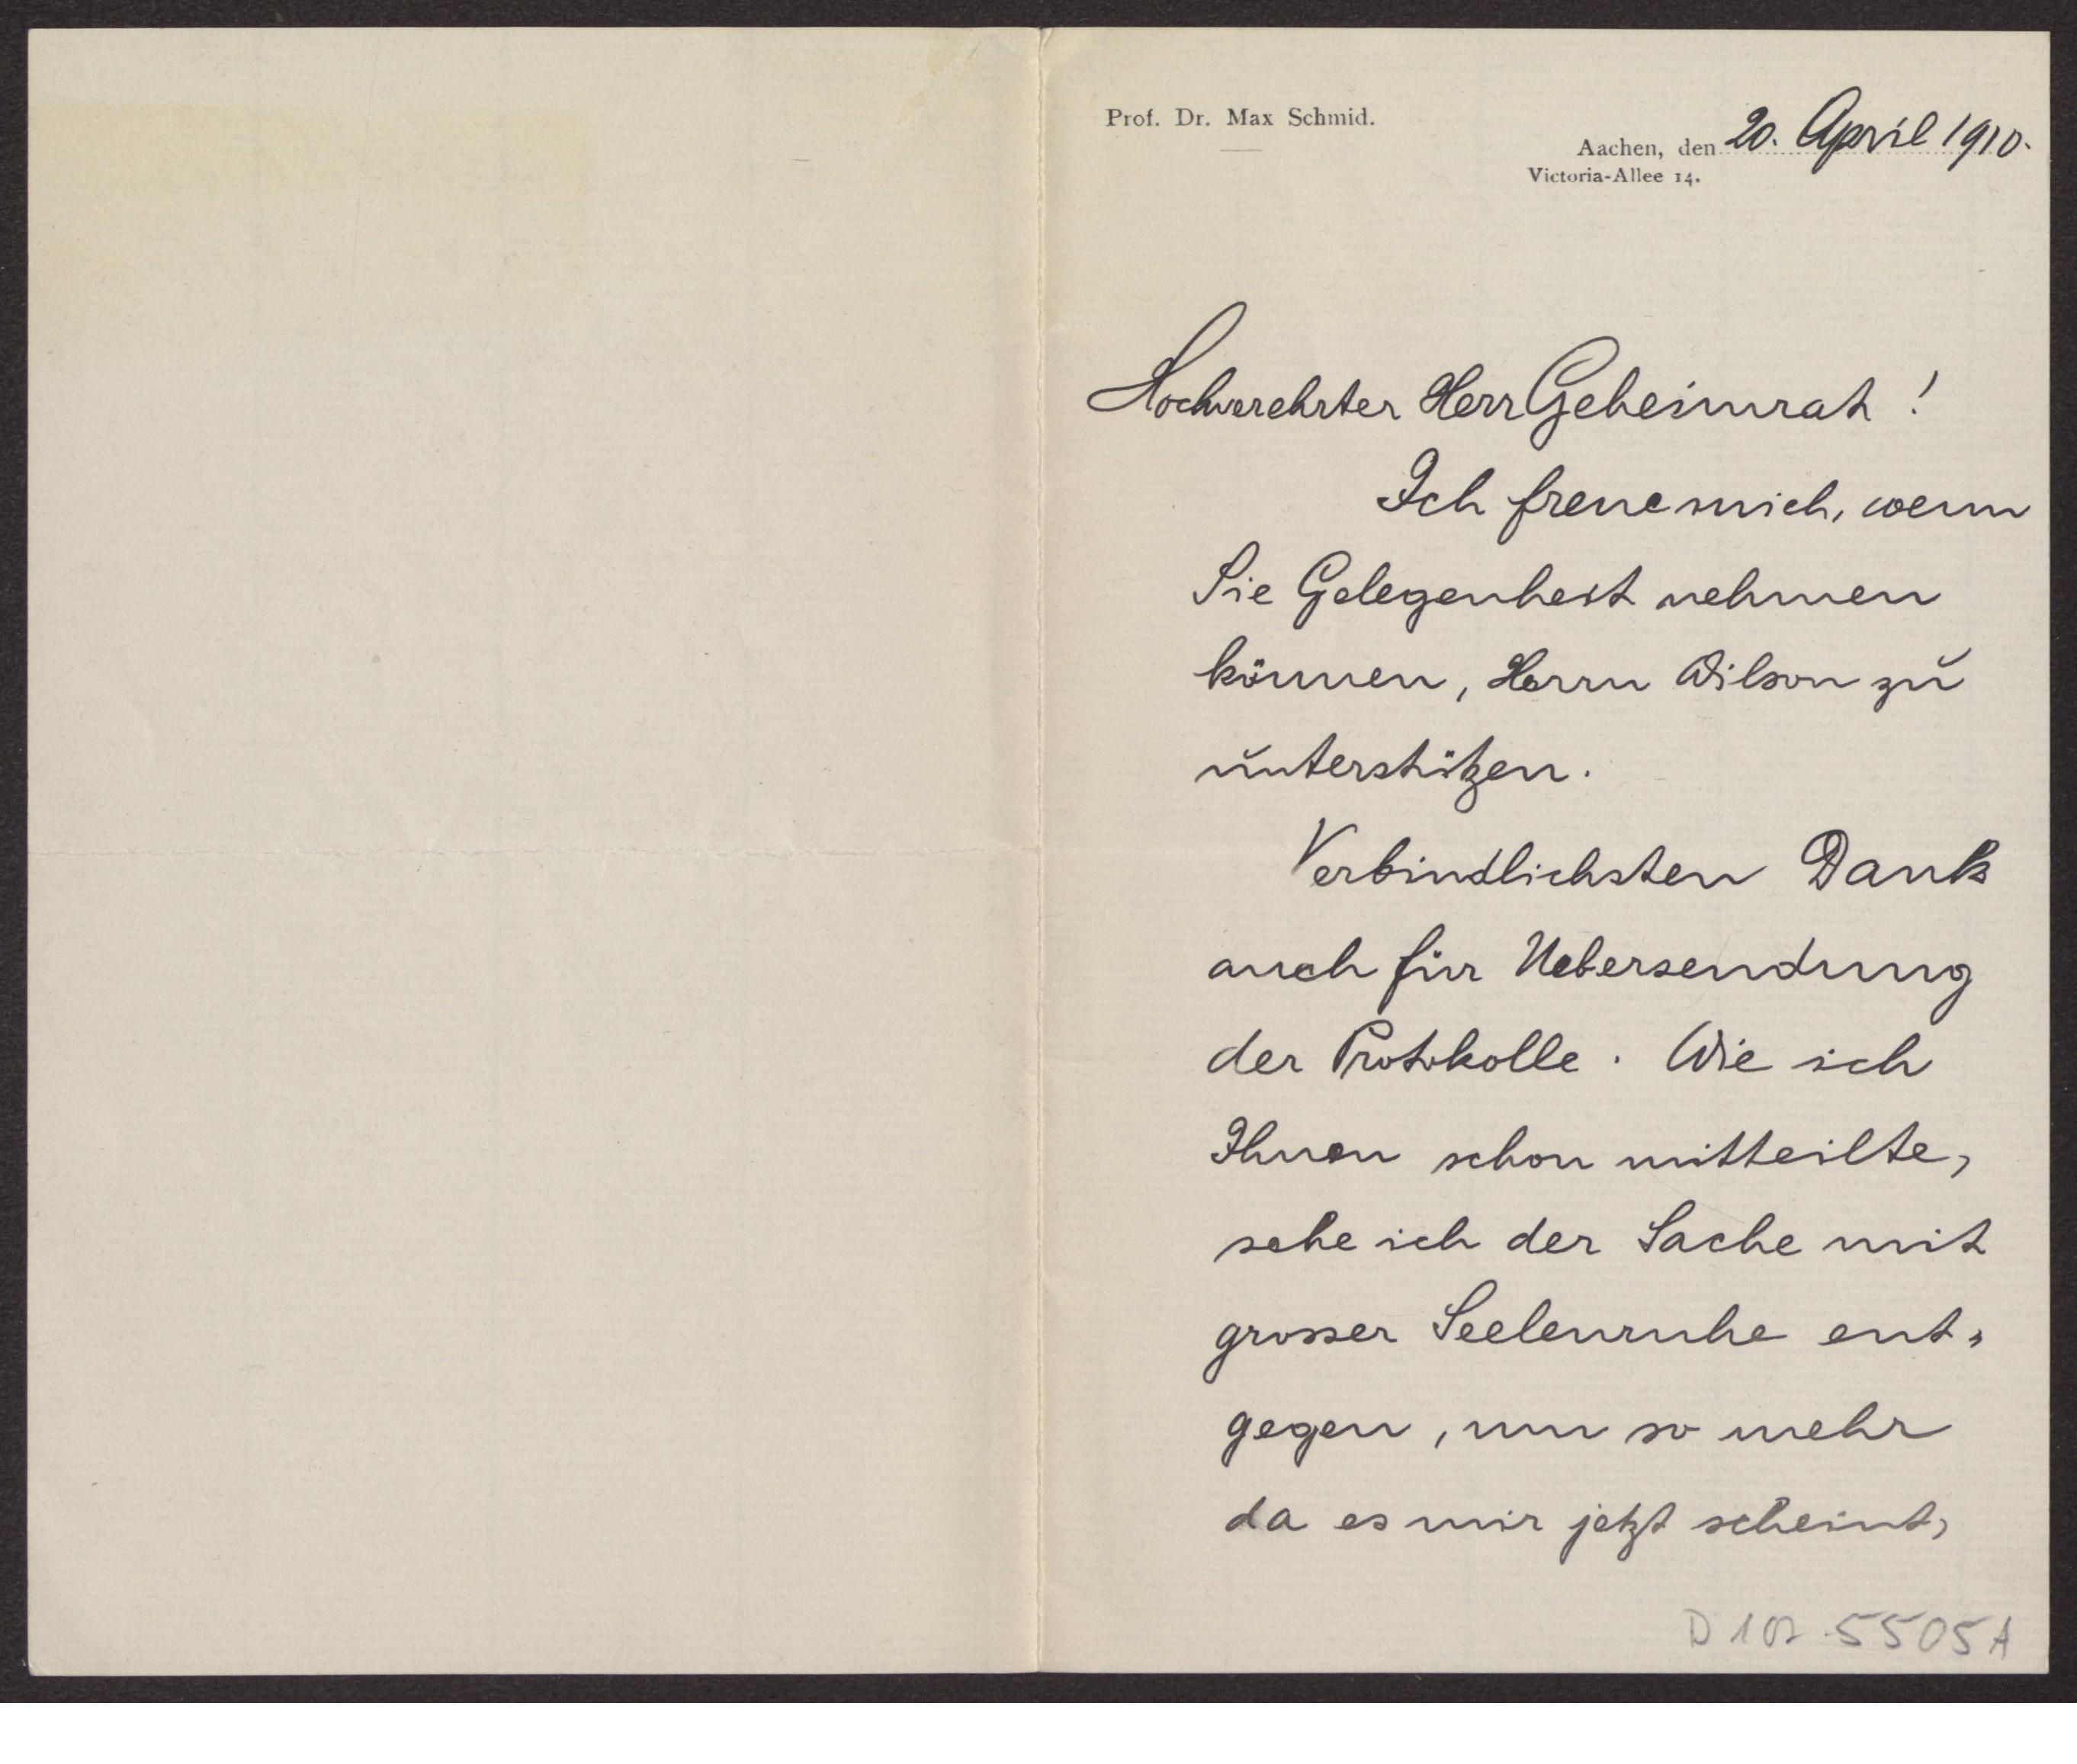 Prof. Dr. Max Schmid.
Aachen, den 20. April 1910.
Victoria-Allee 14.
Hochverehrter Herr Geheimrat!
Ich freue mich, wenn
Sie Gelegenheit nehmen
können, Herrn Wilson zu
unterstützen.
Verbindlichsten Dank
auch für Uebersendung
der Protokolle. Wie ich
Ihnen schon mitteilte,
sehe ich der Sache mit
grosser Seelenruhe ent-
gegen, um so mehr
da es mir jetzt scheint,
D 107.5505 A